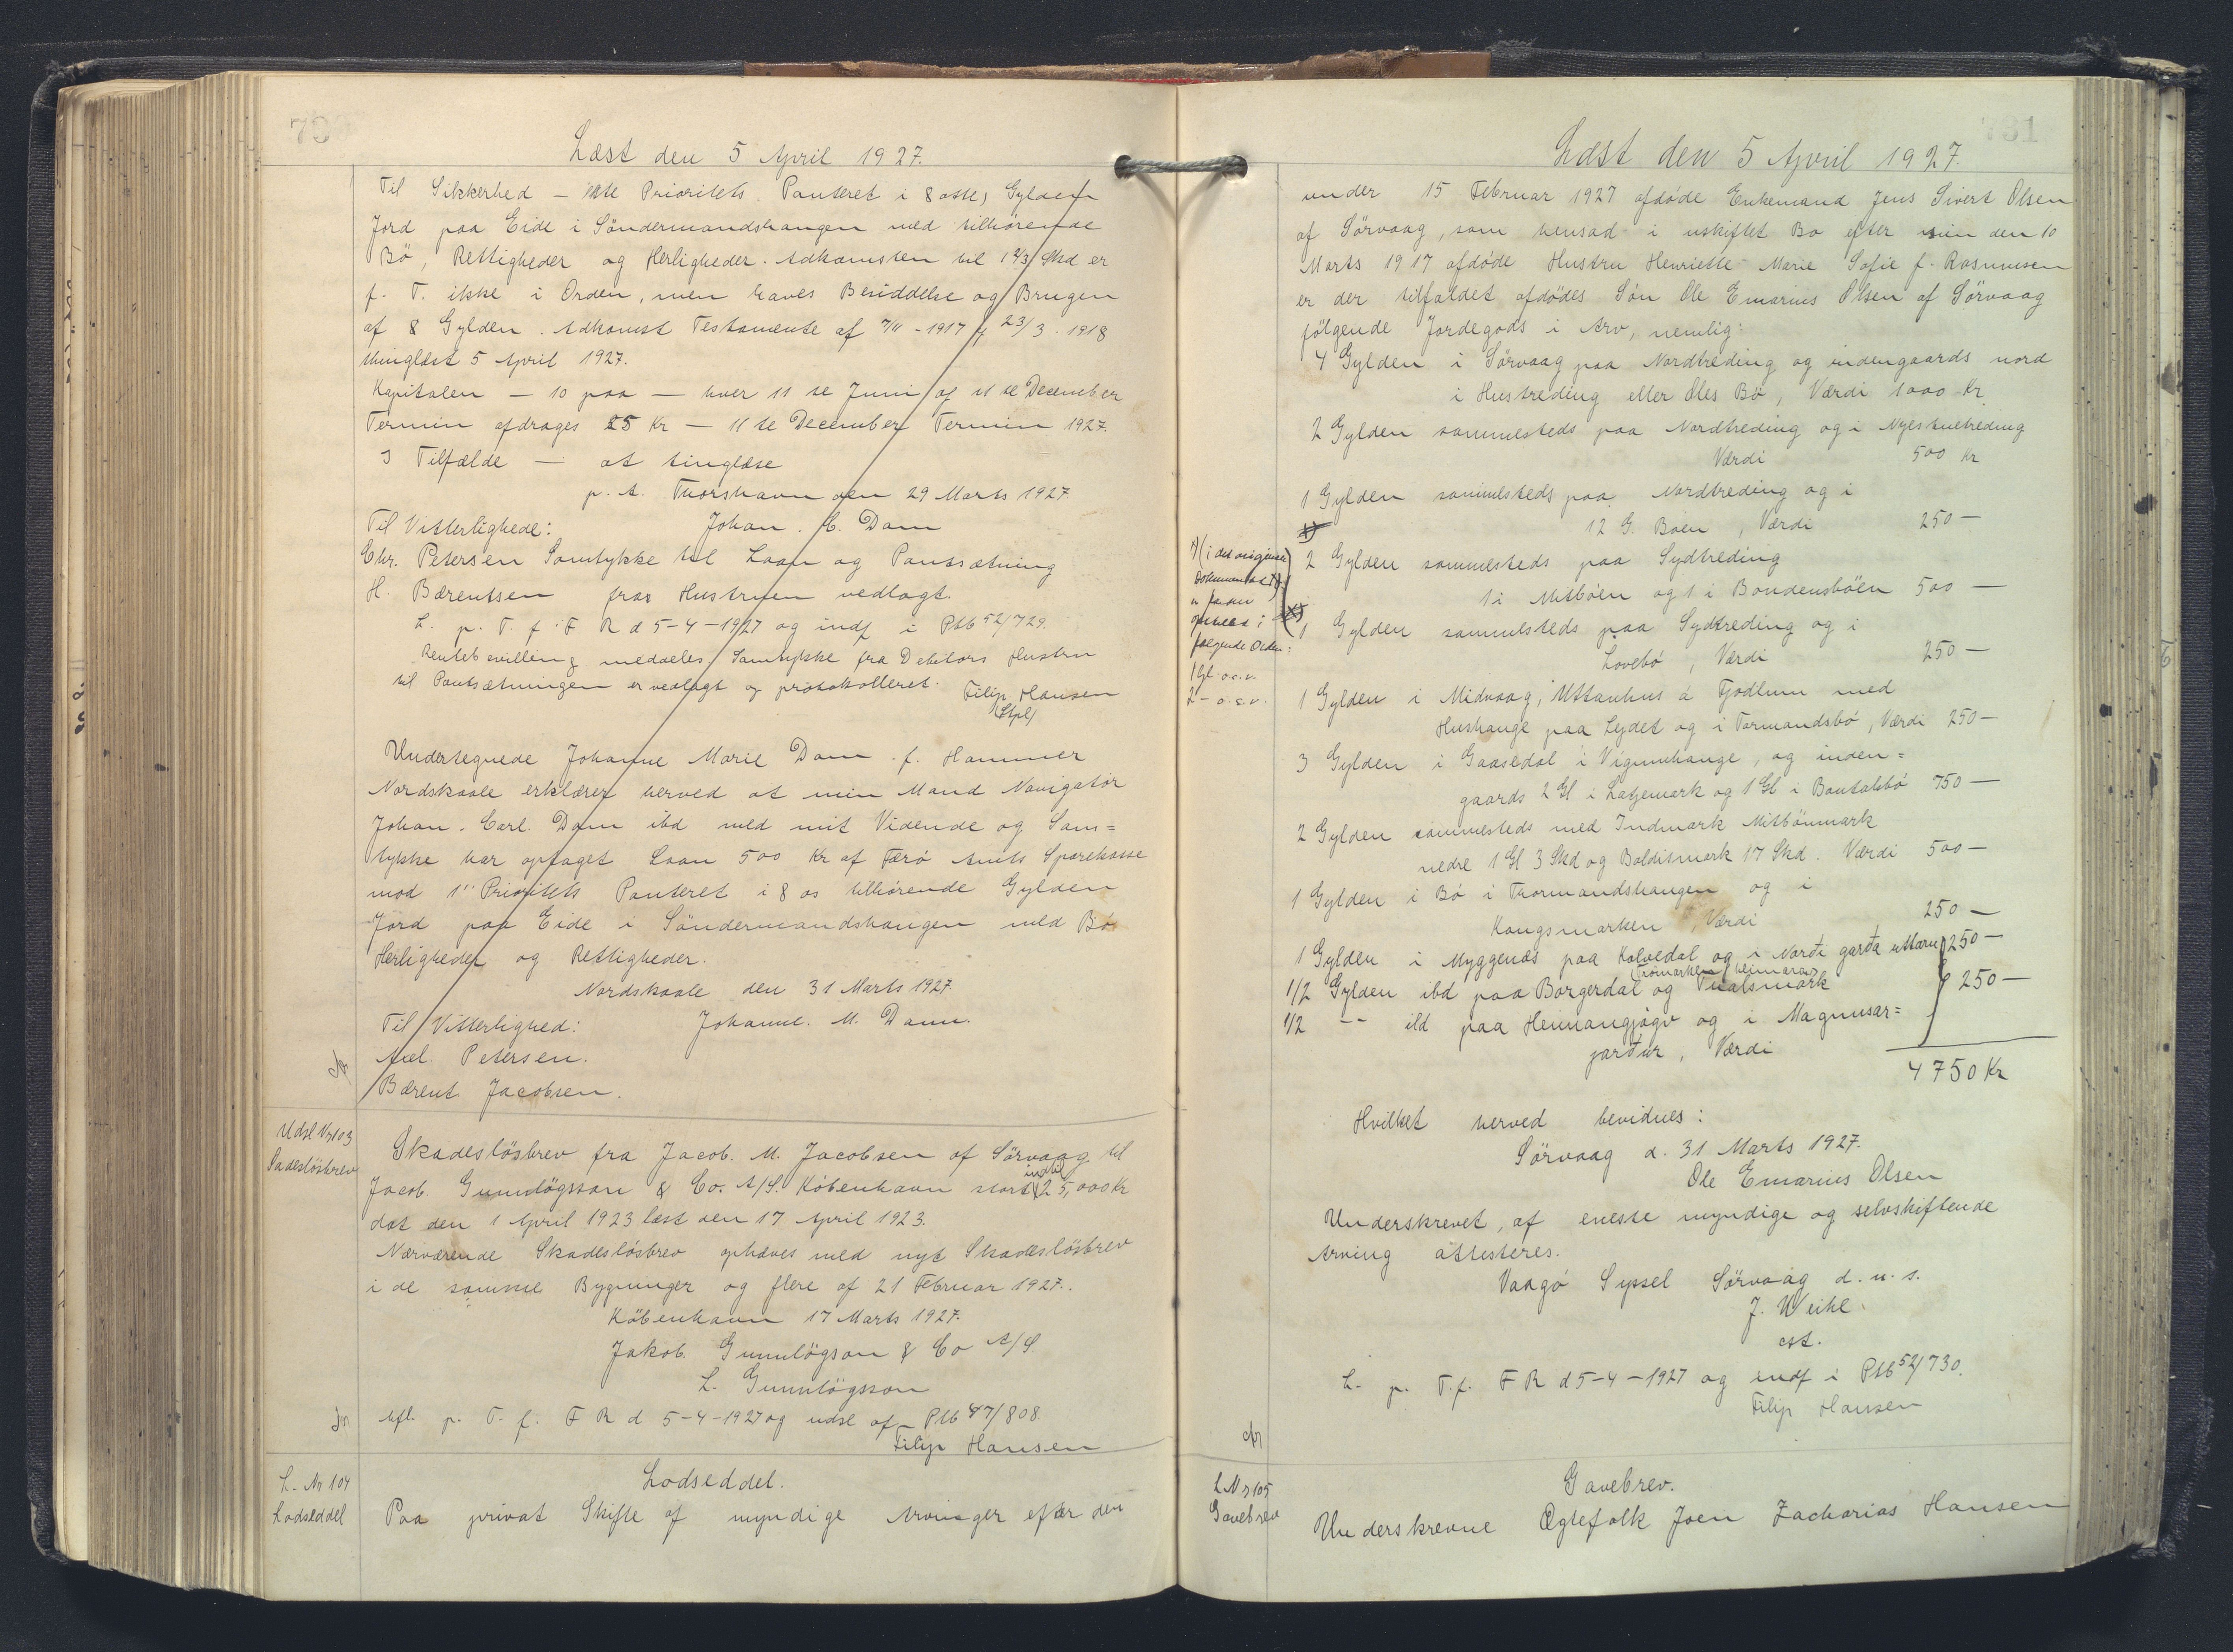 Læst den 5 April 1927.
Til Sikkerhed – 1ste Prioritets Panteret i 8 otte) Gylden
Jord paa Eide i Söndermandshangen med tilhörende
Bö, Rettigheder og Herligheder. Adkomsten til 1 2/3 Skd er
f. T. ikke i Orden, men haves Besiddelse og Brugen
af 8 Gylden. Adkomst Testamente af 7/11 - 1917 & 23/3. 1918
thinglæst 5 April 1927.
Kapitalen – 10 paa – hver 11 te Juni og 11 te December
Termin afdrages 25 Kr – 11 te December Termin 1927.
I Tilfælde – at tinglæse
p. t. Thorshavn den 29 Marts 1927
Til Vitterlighede: Johan. C. Dam
Chr. Petersen Samtykke til Laan og Pantsætning
H. Bærentsen fra Hustruen vedlagt.
L. p. T. f. F R d 5-4-1927 og indf i Ptb 52/729.
Rentebevilling meddeles. Samtykke fra Debitors Hustru
til Pantsætningen er vedlagt og protokolleret. Filip Hansen
(Stpl)
Undertegnede Johanne Marie Dam f. Hammer
Nordskaale erklærer herved at min Mand Navigatör
Johan. Carl. Dam ibd med mit Vidende og Sam=
tykke har optaget Laan 500 Kr af Færö Amts Sparekasse
mod 1" Prioritets Panteret i 8 os tilhörende Gylden
Jord paa Eide i Söndermandshangen med Bö
Herligheder og Rettigheder.
Nordskaale den 31 Marts 1927.
Til Vitterlighed: Johanne. M. Dam.
Petersen.
Bærent Jacobsen.
Udsl Nr 103
Sadeslösbrev
Skadeslösbrev fra Jacob. M. Jacobsen af Sörvaag til
indtil
Jacob. Gunnlögsson & Co. A/S. København stort 25,000 Kr
dat den 1 April 1923 læst den 17 April 1923.
Nærværende Skadeslösbrev ophæves med nyt Skadeslösbrev
i de samme Bygninger og flere af 21 Februar 1927.
København 17 Marts 1927.
Jakob. Gunnlögson & Co A/S.
L. Gunnlögsson
Afl. p. T. f. F R d 5-4-1927 og udsl af Ptb 47/808.
Filip Hansen
L. Nr 104
Lodseddel
Lodseddel.
Paa privat Skifte af myndige Arvinger efter den
731
Læst den 5 April 1927.
under 15 Februar 1927 afdöde Enkemand Jens Sivert Olsen
af Sörvaag, som hensad i uskiftet Bo efter sin den 10
Marts 1917 afdöde Hustru Henriette Marie Sofie f. Rasmussen
er der tilfaldet afdödes Sön Ole Emarius Olsen af Sörvaag
fölgende Jordegods i Arv, nemlig:
4 Gylden i Sörvaag paa Nordtreding og indengaards nord
i Hustreding eller Oles Bö, Værdi 1000 Kr
2 Gylden sammesteds paa Nordtreding og i Nyestuetreding
Værdi 500 Kr
1 Gylden sammesteds paa Nordtreding og i
12 G. Boen, Værdi 250 –
2 Gylden sammesteds paa Sydtreding
1 i Mitböen og 1 i Bondensböen 500 –
1 Gylden sammesteds paa Sydtreding og i
Lovebö, Værdi 250 –
(i det originale
Dokument
opstillet i
følgende Orden:
1 Gl. o.s.v.
2 – o.s.v.
1 Gylden i Midvaag, Uttanhus á Fjodlum med
Hushange paa Leydet og i Tormandsbö, Værdi 250 –
3 Gylden i Gaasedal i Vigumhange, og inden=
gaards 2 Gl i Latjemark og 1 Gl i Bautalsbö 750 –
2 Gylden sammesteds med Indmark Mitbönmark
nedre 1 Gl 3 Skd og Balditsmark 17 Skd. Værdi 500 –
1 Gylden i Bö i Thormandshangen og i
Kongsmarken, Værdi 250 –
1 Gylden i Myggenæs paa Kalvedal og i Norđi garđa uttaru 250 –
1/2 Gylden ibd paa Borgerdal og
1/2 -- ibd paa Heimangjógv og i Magnusar= 250 –
garđur, Værdi
4750 Kr
Hvilket herved bevidnes:
Sörvaag d. 31 Marts 1927.
Ole Emarius Olsen
Underskrevet, af eneste myndige og selvskiftende
Arving attesteres.
Vaagö Syssel Sörvaag d. u. s.
J. Weihe.
cst.
L. p. T. f. F R d 5-4-1927 og indf i Ptb 52/730.
Filip Hansen
L Nr 105
Gavebrev
Gavebrev.
Underskrevne Ægtefolk Joen Zacharias Hansen